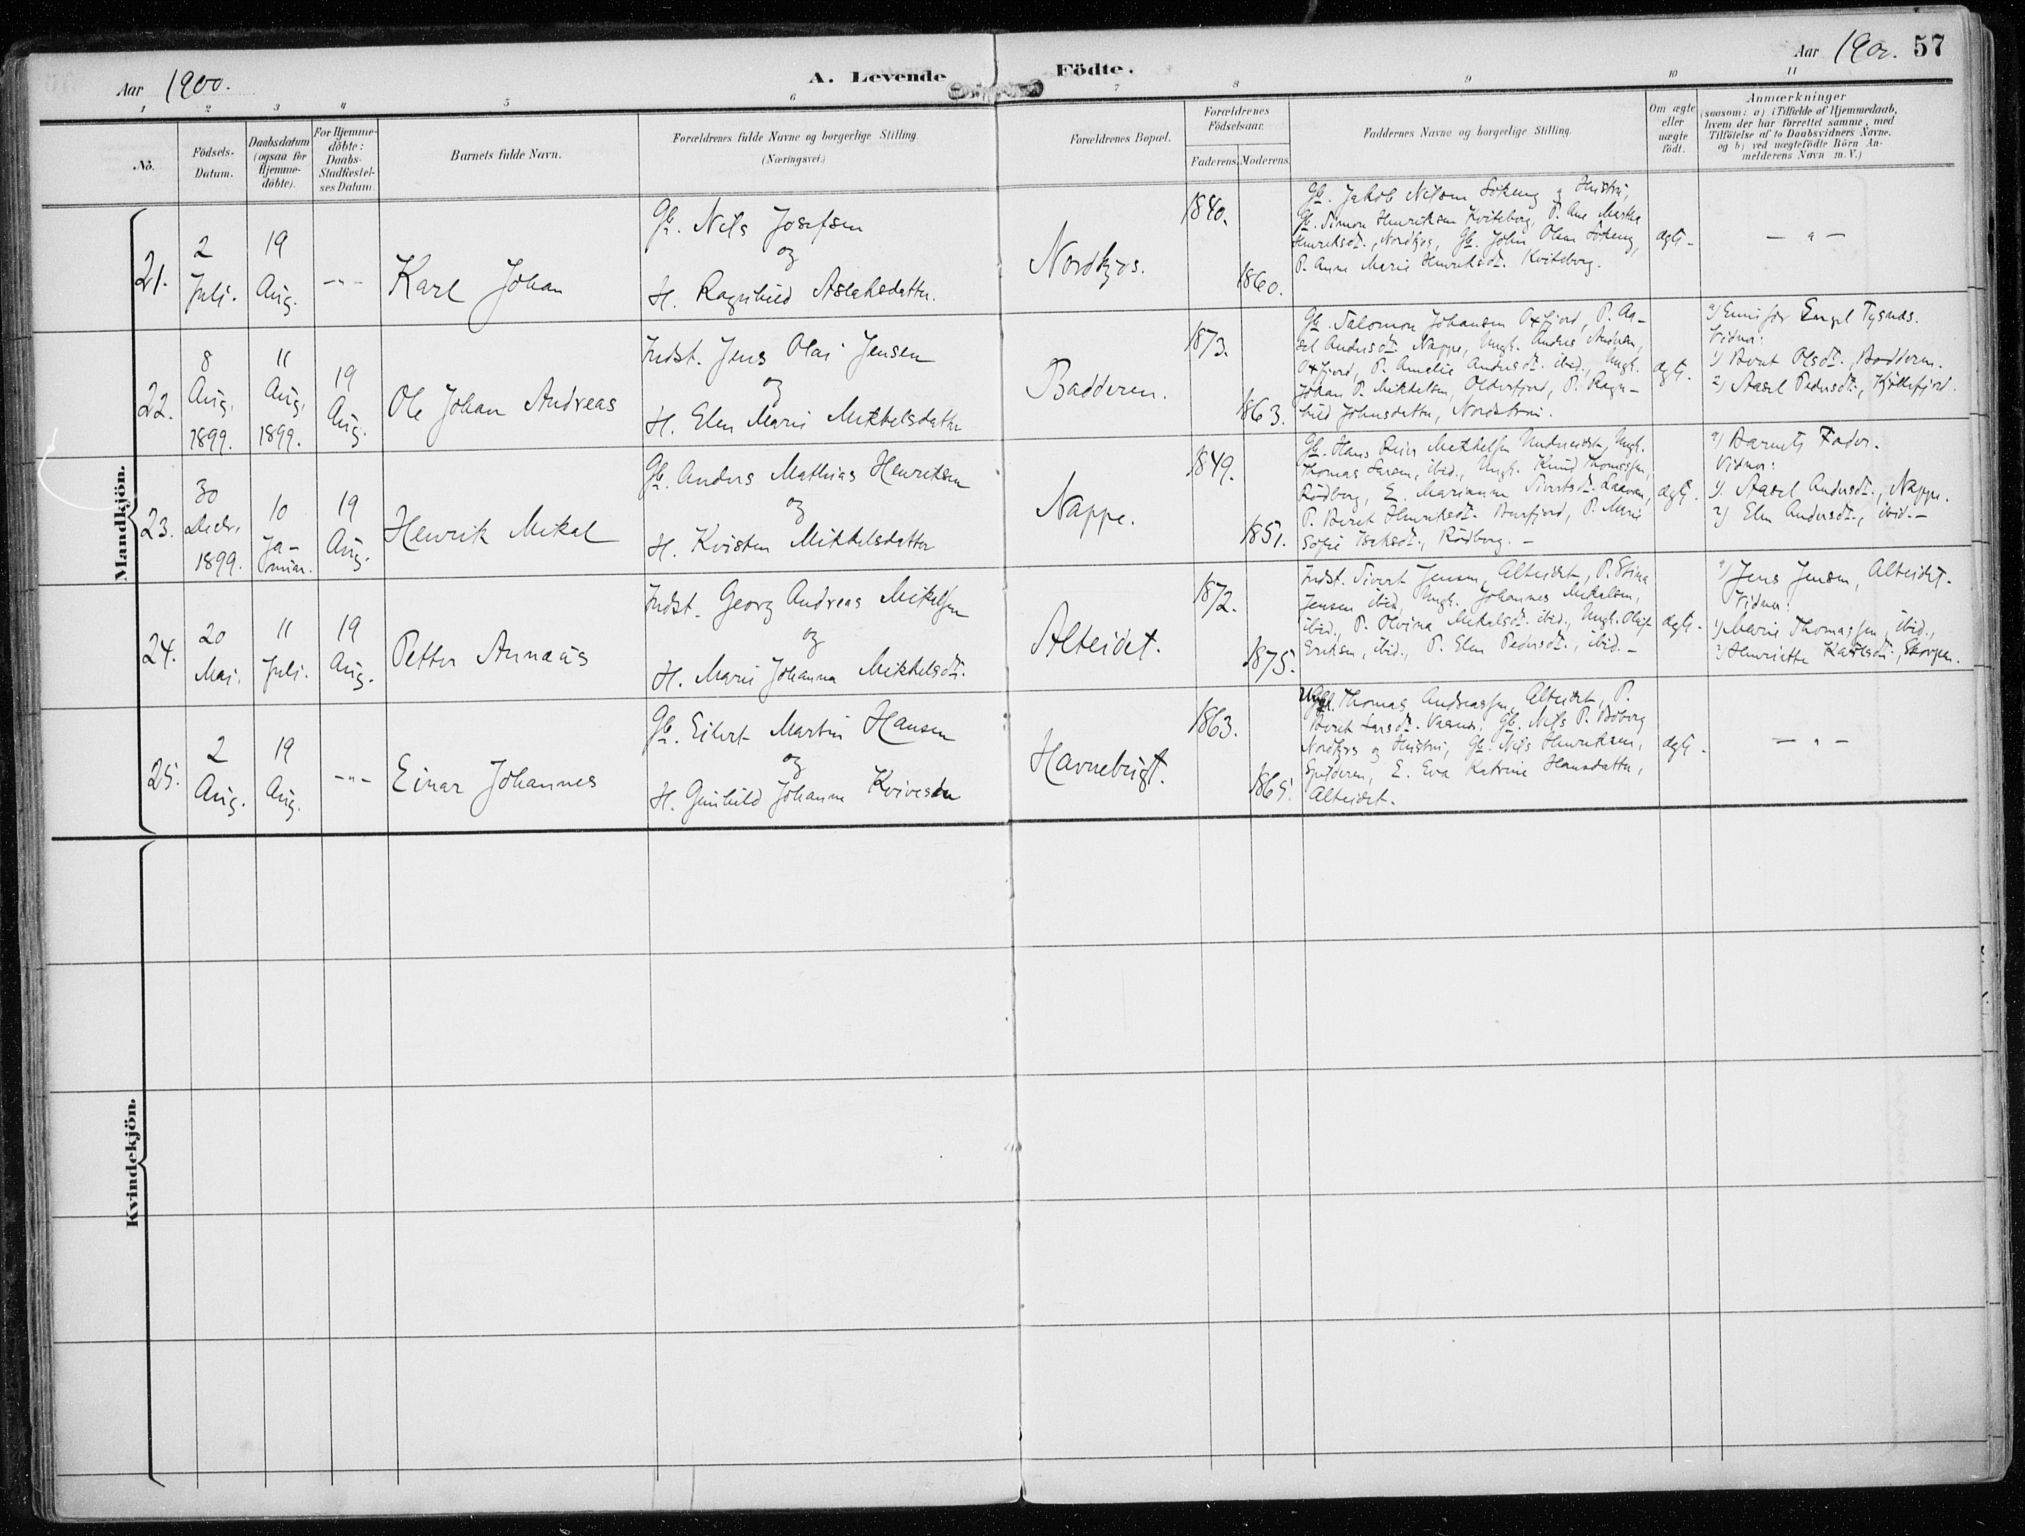 Aar 1900.
A. Levende Födte.
Aar 190
57
1 2 3 4 5 6 7 8 9 10 11
No.
Födsels-
Datum.
Daabsdatum
(ogsaa for
Hjemme-
döbte).
For Hjemme-
döbte:
Daabs-
Stadfestel-
ses Datum.
Barnets fulde Navn.
Forældrenes fulde Navne og borgerlige Stilling.
(Næringsvei.)
Forældrenes Bopæl.
Forældrenes
Födselsaar.
Faderens. Moderens.
Faddernes Navne og borgerlige Stilling.
Om ægte
eller
uægte
födt.
Anmærkninger
(saasom: a) i Tilfælde af Hjemmedaab,
hvem der har forrettet samme, med
Tilföielse af to Daabsvidners Navne.
og b) ved uægtefödte Börn An-
melderens Navn m. V.)
Mandkjön.
21.
2
Juli.
19
Aug.
-"-
Karl Johan
Gb. Nils Josefsen
og
H. Ragnhild Aslaksdatter.
Nordkjos.
1840.
1860.
Gb. Jakob Nilsen Sökeng og Hustru,
Gb. Simon Henriksen Kviteberg, P. Ane Marthe
Henriksdt., Nordkjos, Gb. Johan Olsen Sökeng,
P. Anne Marie Henriksdt. Kviteberg.
ægte.
- " -
22.
8
Aug.
1899.
11
Aug.
1899.
19
Aug.
Ole Johan Andreas
Indst. Jens Olai Jensen
og
H. Elen Marie Mikkelsdatter
Badderen.
1873.
1863.
Gb. Salomon Johansen Oxfjord, P. Aa-
sel Andersdt. Nappe, Ungk. Anders
Oxfjord, P. Amelie Andersdt. ibid., Ungk.
Johan P. Mikkelsen, Olderfjord, P. Ragn-
hild Johnsdatter,
ægte.
a) Engel Tysnæs.
Vidner:
1) Berit Olsdt., Badderen.
2) Aasel Pedersdt.,
23.
30
Decbr.
1899.
10
Ja-
nuar.
19
Aug.
Henrik Mikal
Gb. Anders Mathias Henriksen
og
H. Kristen Mikkelsdatter
Nappe.
1849.
1851.
Gb. Hans Peier Mikkelsen Undereidet, Ungk.
Thomas Larsen, ibid., Ungk. Knud Thomassen,
Rödberg, E. Marianne Sivertsdt.
P. Berit Henriksdt. Burfjord, P. Marie
Sofie Isaksdt., Rödberg. -
ægte.
a) Barnets Fader.
Vidner:
1) Aasel Andersdt., Nappe.
2) Elen Andersdt., ibid. -
24.
20
Mai.
11
Juli.
19
Aug.
Petter Annæus
Indst. Georg Andreas Mikelsen
og
H. Marie Johanna Mikkelsdt.
Alteidet.
1872.
1875.
Indst. Sivert Jensen, Alteidet, P. Stina
Jensen ibid, Ungk. Johannes Mikalsen,
ibid., P. Olvina Mikalsdt. ibid., Ungk. Olaf
Eriksen, ibid., P. Elen Pedersdt., ibid. -
ægte.
a) Jens Jensen, Alteidet.
Vidner:
1) Marie Thomassen, ibid.,
2) Henriette Karlsdt., Skorpen.
25.
2
Aug.
19
Aug.
-"-
Einar Johannes
Gb. Eilert Martin Hansen
og
H. Gunhild Johanne
Havnebugt.
1863.
1865.
Thomas Andreassen, Alteidet, P.
Berit Larsdt. Gb. Nils P. Böberg
Nordkjos og Hustru, Gb. Nils Henriksen,
Spilderen, E. Eva Katrine Hansdatter,
Alteidet.
ægte.
- " -
Kvindekjön.